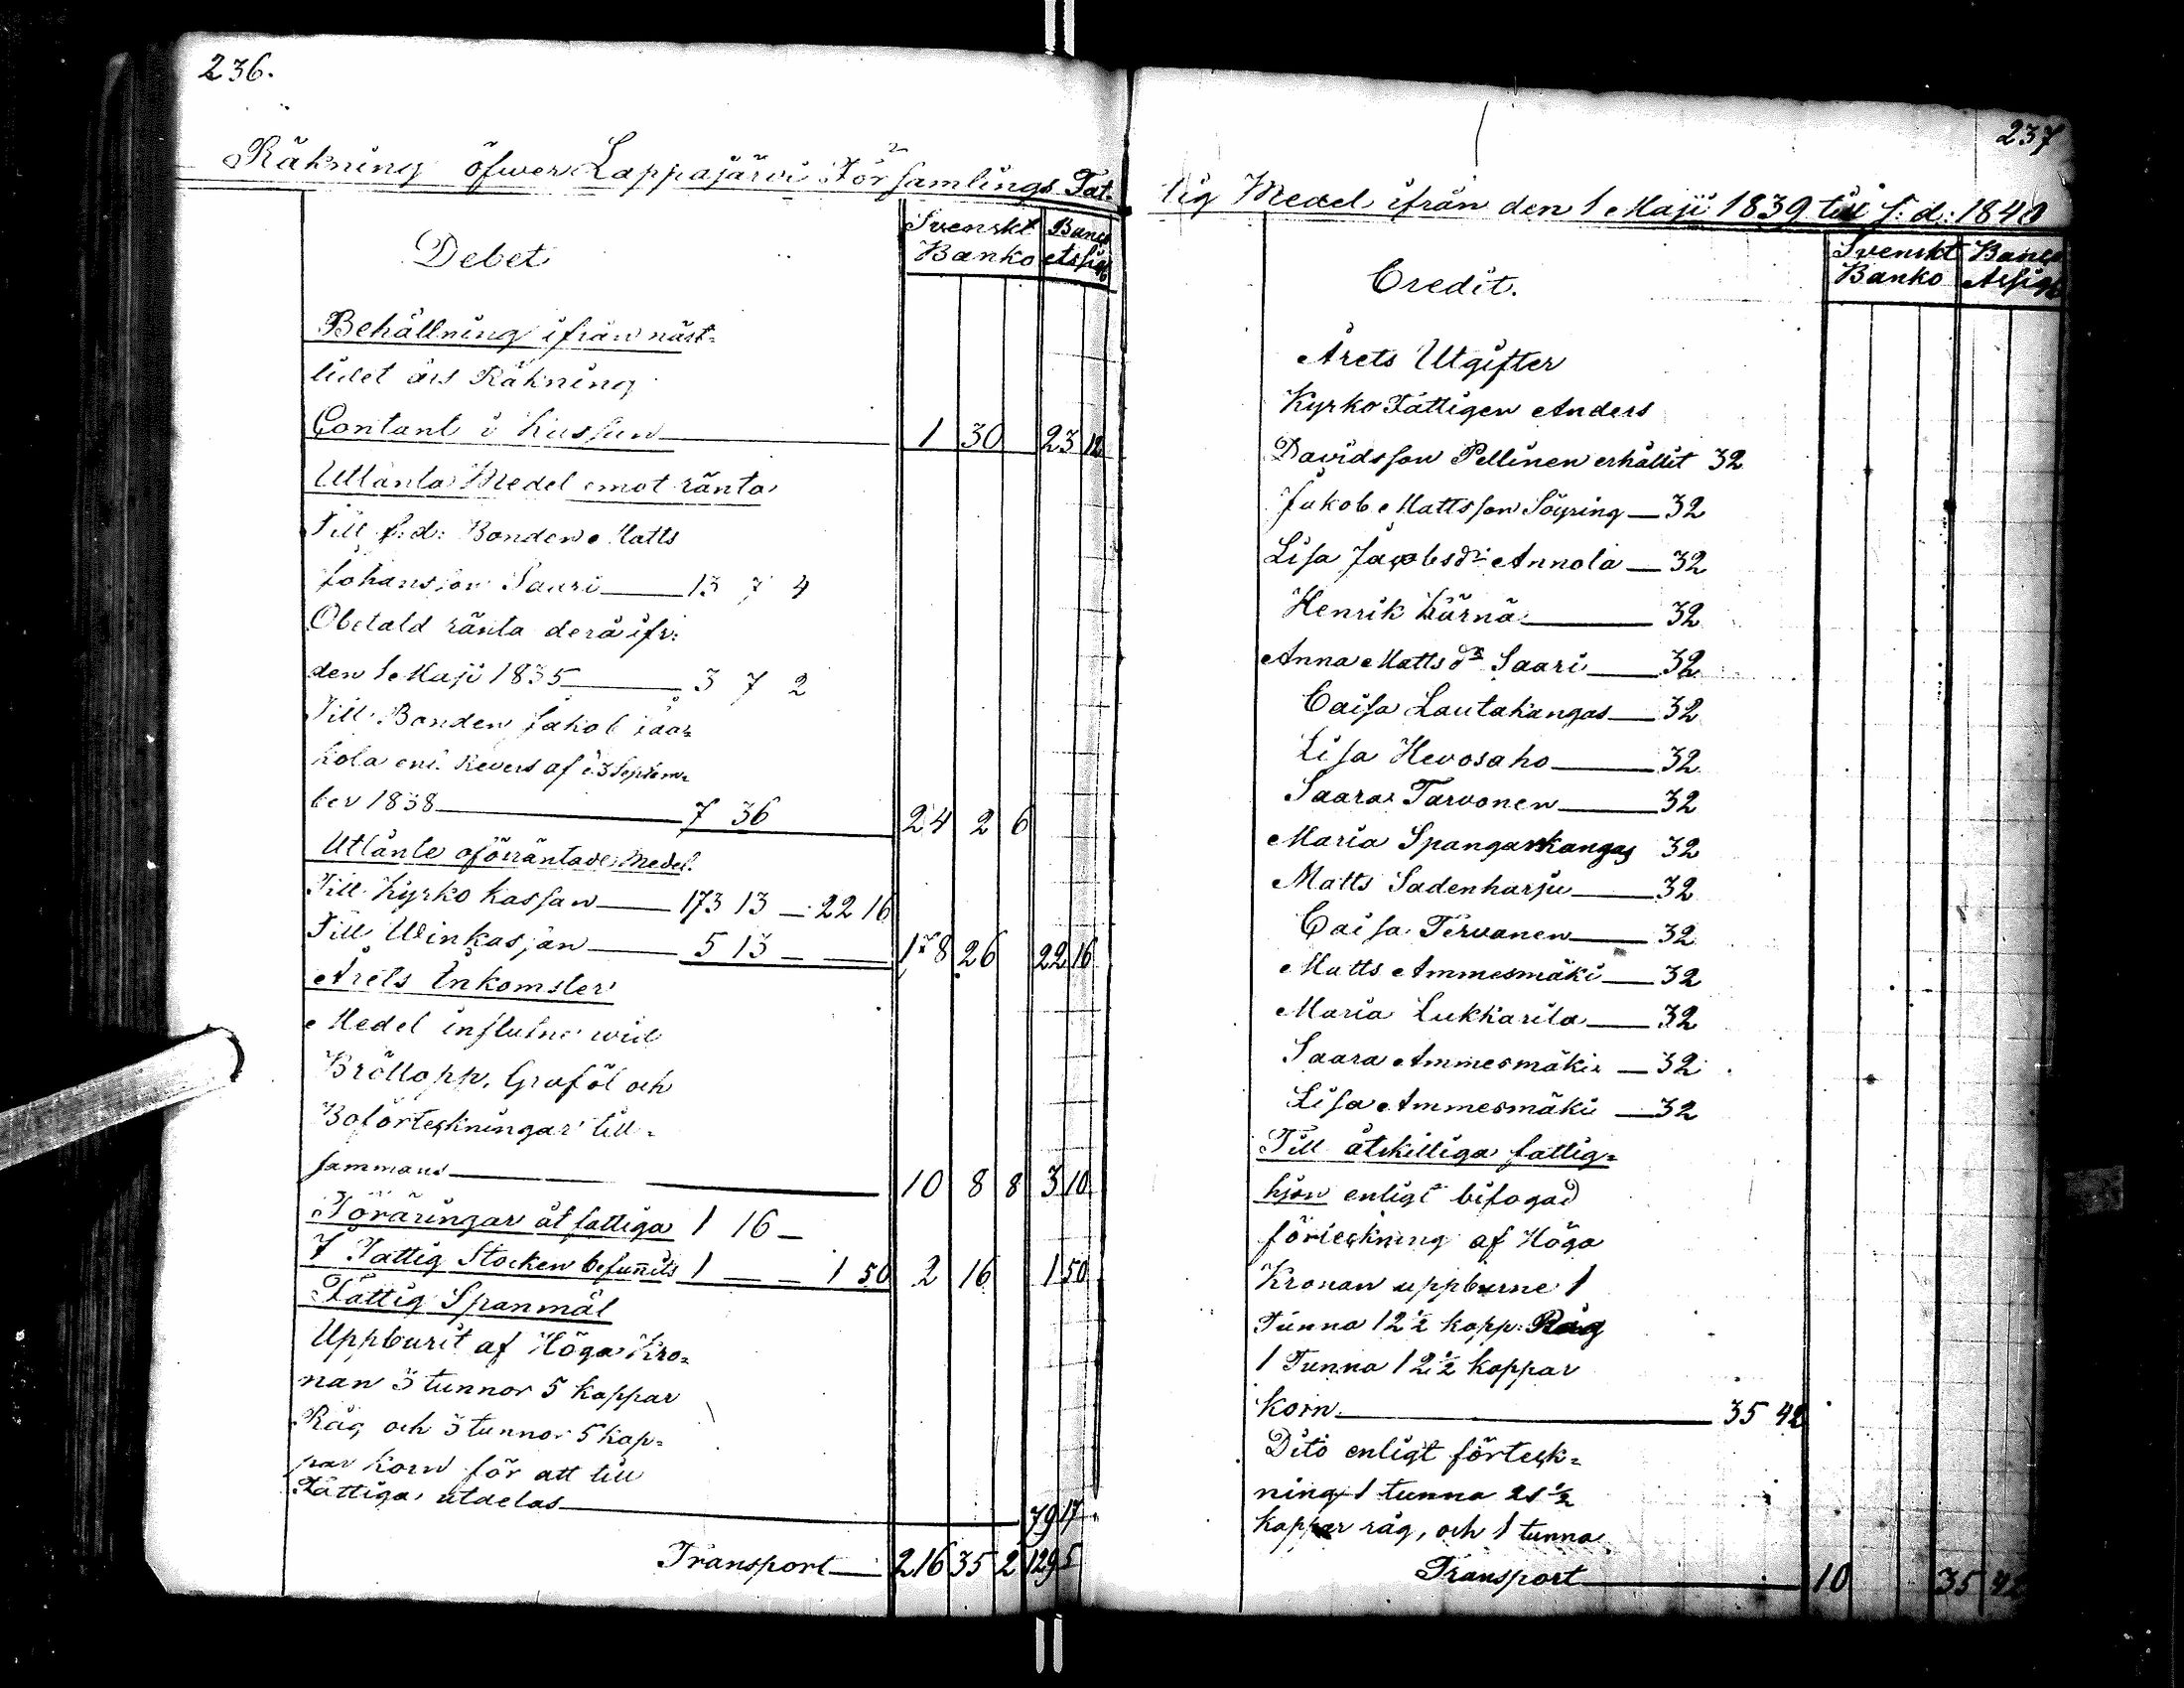 236.
Räkning öfwer Lappajärvi Församlings Fat-
Debet
Svenskt Banko
Banco Assign
Behållning ifrån näst=
lidet års Räkning
Contant i Kassan 1 30 23 12
Utlånta Medel emot ränta
Till f: d: Bonden Matts
Johansson Saari 13 7 4
Obetald ränta derå ifr:
den 1 Maji 1835 3 7 2
Till Bonden Jakob
kola enl. Revers af d. 3 Septem=
ber 1838 7 36 24 2 6
Utlånte oförräntade Medel.
Till Kyrko Kassan 173 13 — 22 16
Till Winkassan 5 13 — — 178 26 22 16
Årets Inkomster
Medel influtne wid
Bröllopp, Graföl och
Boförteckningar till=
sammans 10 8 8 3 10
Föräringar åt fattiga 1 16 —
I Fattig Stocken befunnits 1 — — 1 50 2 16 1 50
Fattig Spanmål
Uppburit af Höga Kro=
nan 3 tunnor 5 kappar
Råg och 3 tunnor 5 kap=
par korn för att till
Fattiga utdelas 79 17
Transport 216 35 2 129 5
237
tig Medel ifrån den 1 Maji 1839 till s: d: 1840
Credit.
Svenskt Banko
Banco Assign
Årets Utgifter
Kyrko Fattigen Anders
Davidsson Pellinen erhållit 32
Jakob Mattsson Söyring — 32
Lisa Jacobsdr Annola — 32
Henrik Kärnä 32
Anna Mattsdr Saari 32
Caisa Lautakangas 32
Lisa Hevosaho 32
Saara Tarvonen 32
Maria Spangarkangas 32
Matts Sadenharju 32
Caisa Tervanen 32
Matts Ammesmäki 32
Maria Lukkarila 32
Saara Ammesmäki — 32
Lisa Ammesmäki — 32
Till åtskilliga fattig=
hjon enligt bifogad
förteckning af Höga
Kronan uppburne 1
Tunna 12 ½ kapp: Råg
1 Tunna 12 ½ kappar
Korn 35 42
Dito enligt förteck=
ning 1 tunna 21 ½
kappar råg, och 1 tunna
Transport 10 35 42